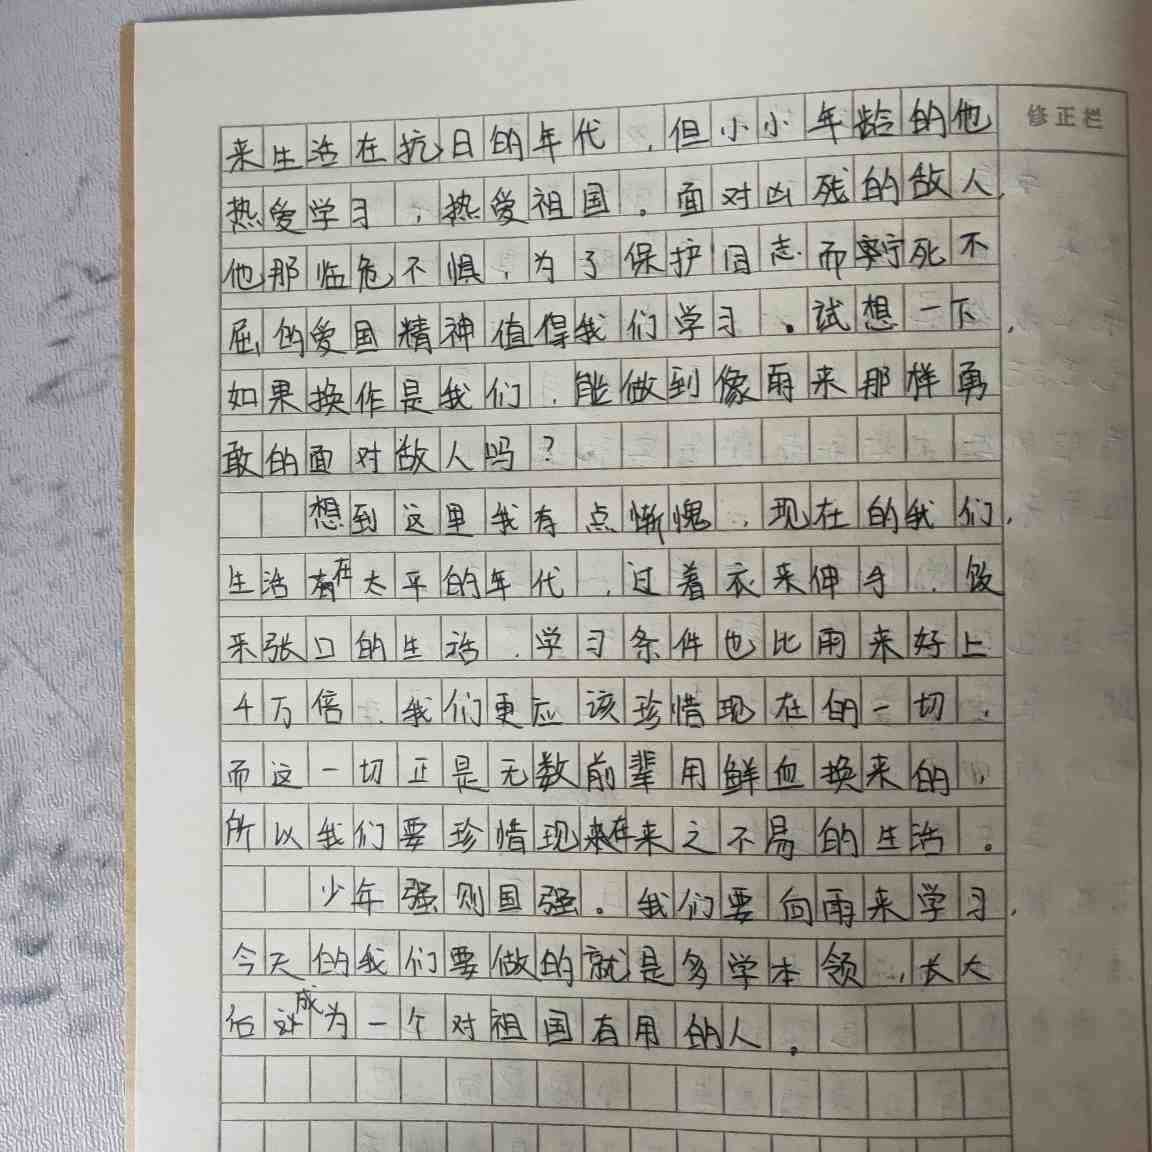 修正栏
来生活在抗日的年代，但小小年龄的他
热爱学习，热爱祖国。面对凶残的敌人，
他那临危不惧，为了保护同志而宁死不
屈的爱国精神值得我们学习。试想一下，
如果换作是我们，能做到像雨来那样勇
敢的面对敌人吗？
想到这里我有点惭愧，现在的我们，
生活在太平的年代，过着衣来伸手，饭
来张口的生活，学习条件也比雨来好上
千万倍，我们更应该珍惜现在的一切，
而这一切正是无数前辈用鲜血换来的，
所以我们要珍惜现在来之不易的生活。
少年强则国强。我们要向雨来学习，
今天的我们要做的就是多学本领，长大
后成为一个对祖国有用的人。